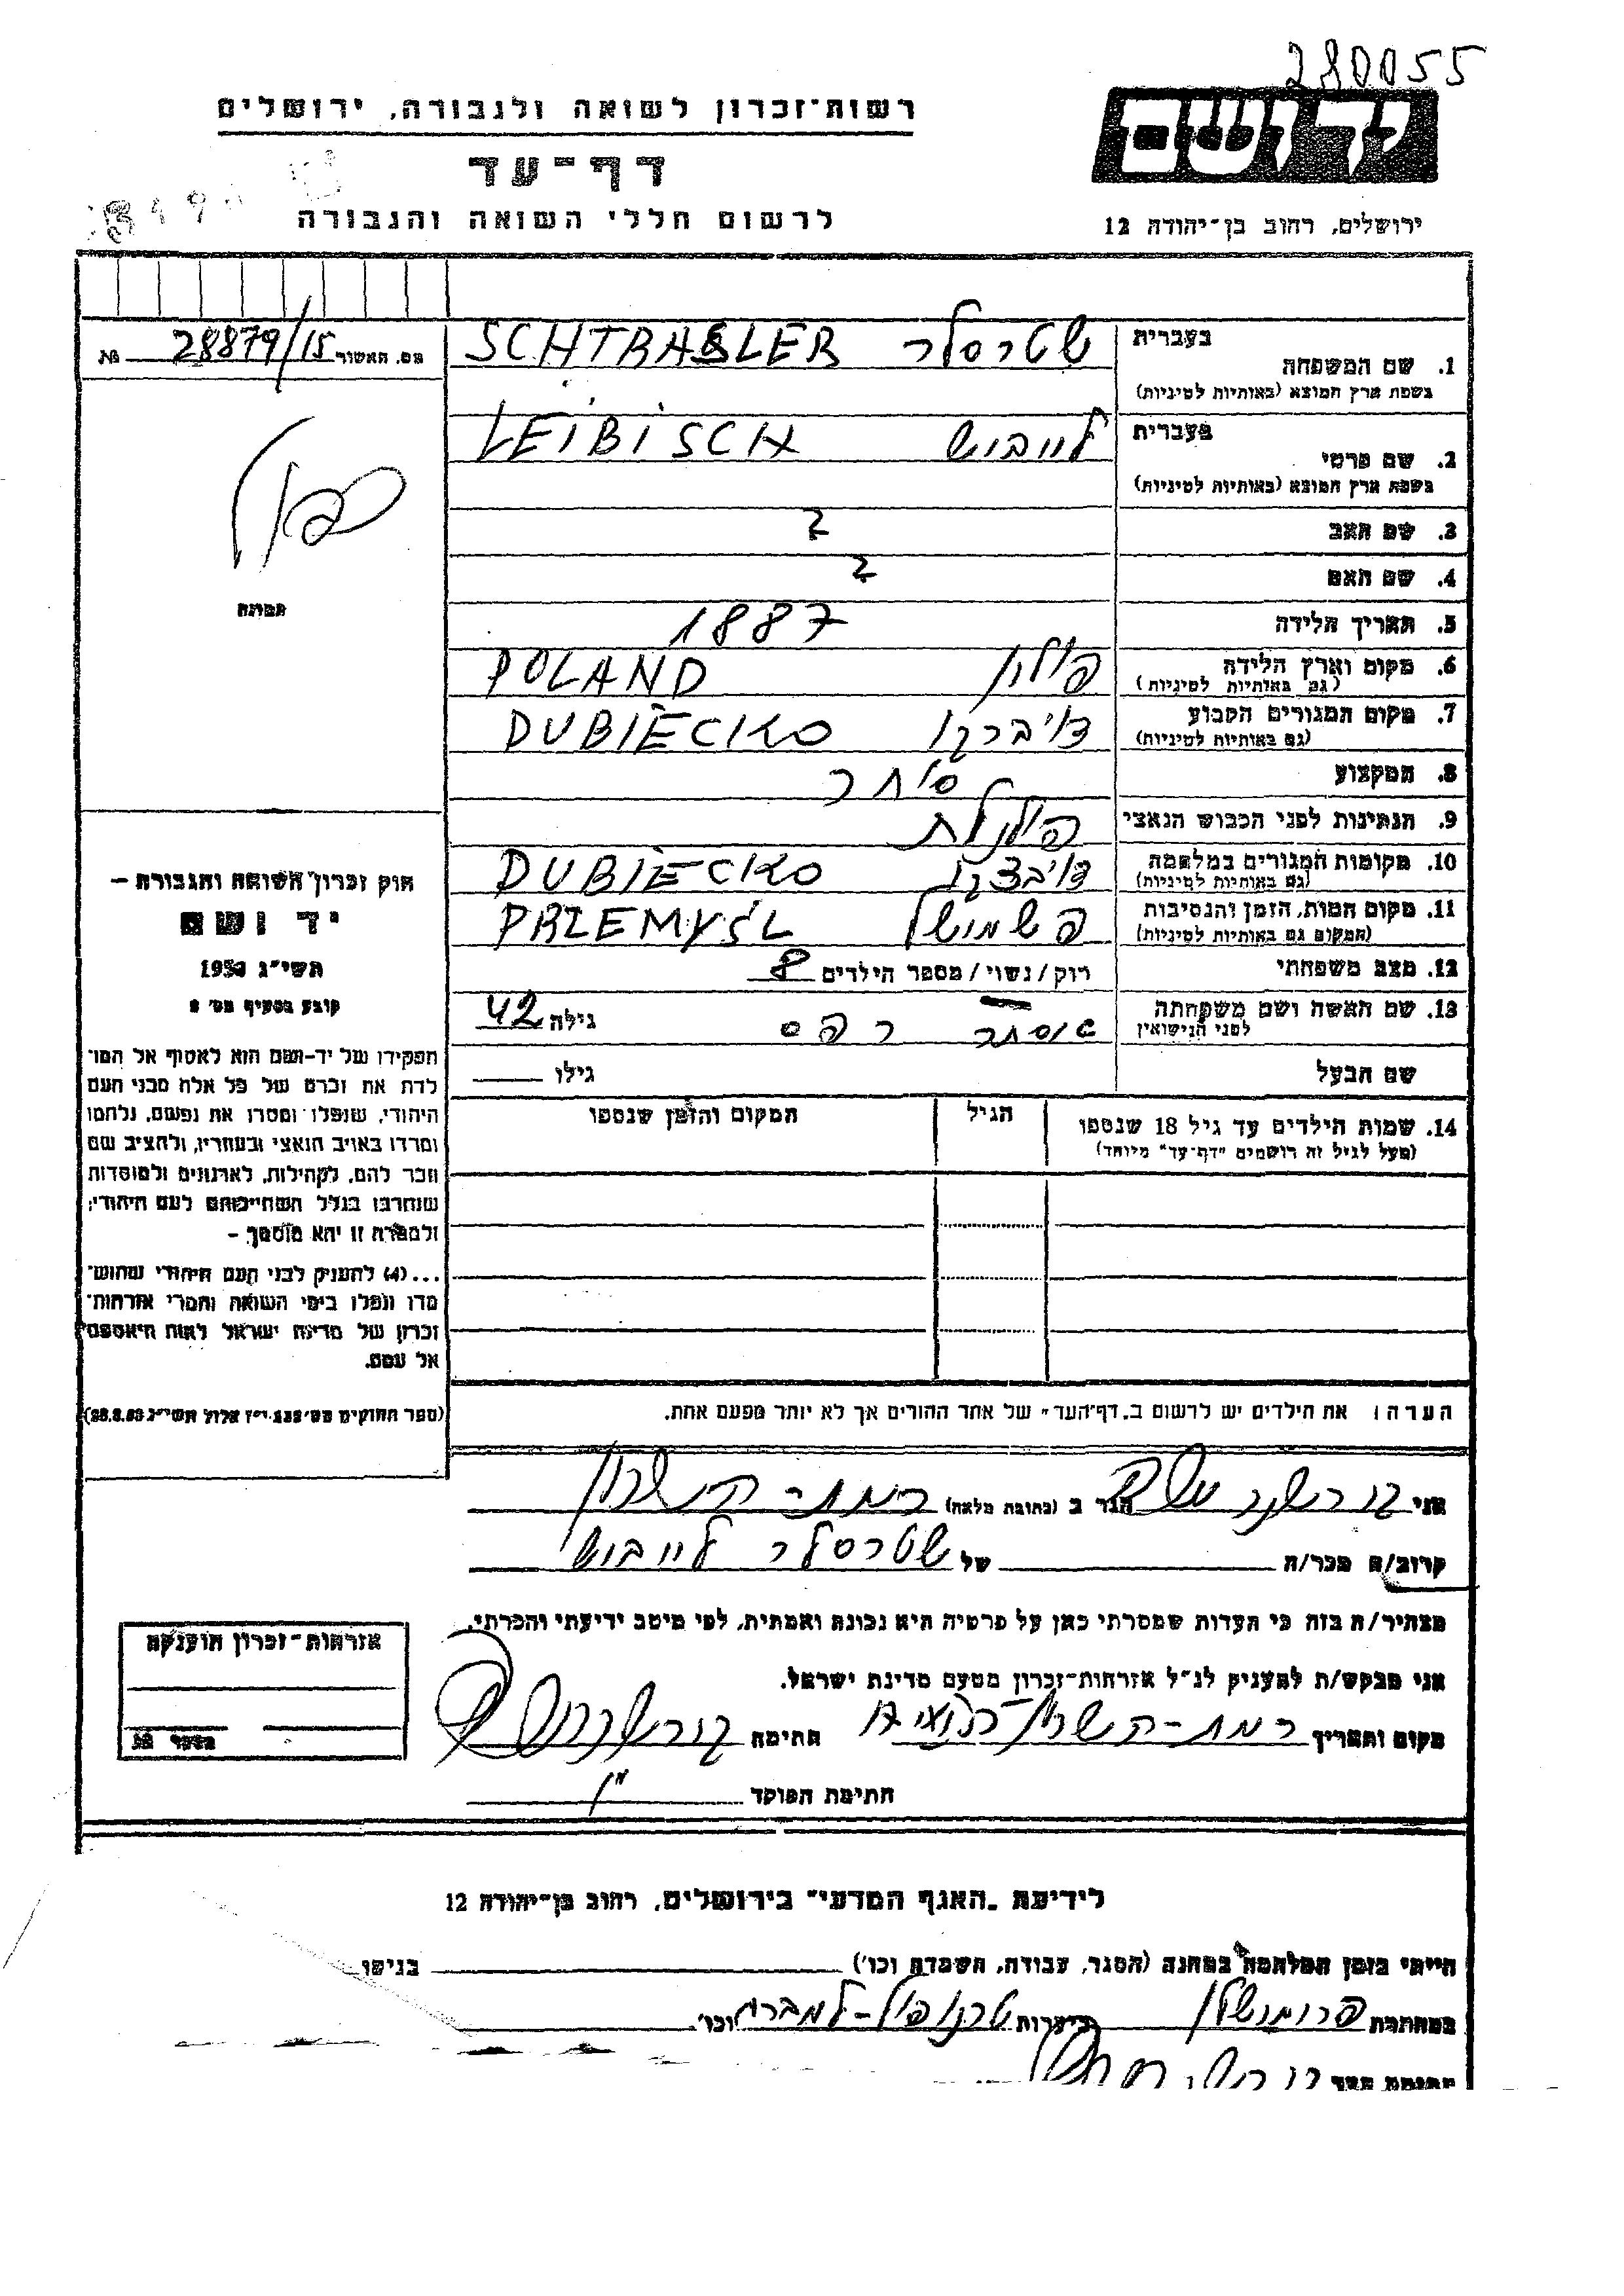 280055
רשות־זכרון לשואה ולגבורה, ירושלים
יד ושם
דף־עד
לרשום חללי השואה והגבורה
ירושלים, רחוב בן־יהודה 12
מס. האשור 28879/15
1. שם המשפחה בעברית שטרסלר SCHTRASLER
בשפת ארץ המוצא (באותיות לטיניות)
2. שם פרטי בעברית לייבוש LEIBISCH
בשפת ארץ המוצא (באותיות לטיניות)
3. שם האב ?
4. שם האם ?
5. תאריך הלידה 1887
6. מקום וארץ הלידה פולין POLAND
(גם באותיות לטיניות)
7. מקום המגורים הקבוע DUBIECKO
(גם באותיות לטיניות)
8. המקצוע סוחר
9. הנתינות לפני הכבוש הנאצי פולנית
10. מקומות המגורים במלחמה דיבצקו DUBIECKO
(גם באותיות לטיניות)
11. מקום המות, הזמן והנסיבות פשמושל PRZEMYŚL
(המקום גם באותיות לטיניות)
12. מצב משפחתי רוק/נשוי/מספר הילדים 8
13. שם האשה ושם משפחתה לפני הנישואין אסתר גילה 42
שם הבעל גילו
14. שמות הילדים עד גיל 18 שנספו הגיל המקום והזמן שנספו
(מעל לגיל זה רושמים "דף־עד" מיוחד)
הערה: את הילדים יש לרשום ב"דף־העד" של אחד ההורים אך לא יותר מפעם אחת.
תמונה
חוק זכרון השואה והגבורה –
יד ושם
תשי"ג 1953
קובע בסעיף מס' 2
תפקידו של יד־ושם הוא לאסוף אל המו־
לדת את זכרם של כל אלה מבני העם
היהודי, שנפלו ומסרו את נפשם, נלחמו
ומרדו באויב הנאצי ובעוזריו, ולהציב שם
וזכר להם, לקהילות, לארגונים ולמוסדות
שנחרבו בגלל השתייכותם לעם היהודי;
ולמטרה זו יהא מוסמך –
...(4) להעניק לבני העם היהודי שהוש־
מדו ונפלו בימי השואה והמרי אזרחות־
זכרון של מדינת ישראל לאות היאספם
אל עמם.
(ספר החוקים מס' 132, י"ז אלול תשי"ג 28.8.53)
אני הגר ב (כתובת מלאה) רמת-השרון
קרוב/ה מכר/ה של שטרסלר לייבוש
מצהיר/ה בזה כי העדות שמסרתי כאן על פרטיה היא נכונה ואמתית, לפי מיטב ידיעתי והכרתי.
אני מבקש/ת להעניק לנ"ל אזרחות־זכרון מטעם מדינת ישראל.
מקום ותאריך רמת-השרון חתימה
חתימת הפוקד
אזרחות־זכרון הוענקה
מספר
לידיעת "האגף המדעי" בירושלים, רחוב בן־יהודה 12
הייתי בזמן המלחמה במחנה (הסגר, עבודה, השמדה וכו') בגיטו
במחתרת ביערות טרנופול-למברג וכו'
חתימת העד